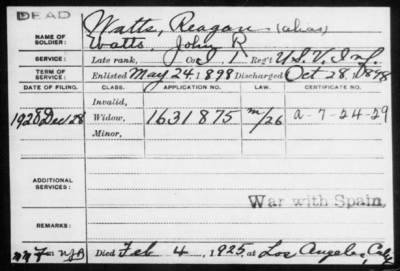 DEAD
NAME OF SOLDIER: Watts, Reagan (alias)
Watts, John R
SERVICE: Late rank, Co. I, 1 Reg't U.S.V. Inf.
TERM OF SERVICE: Enlisted May 24, 1898 Discharged Oct 28, 1898
DATE OF FILING. CLASS. APPLICATION NO. LAW. CERTIFICATE NO.
Invalid,
1928 Dec 28 Widow, 1631875 m/26 a-7-24-29
Minor,
ADDITIONAL SERVICES:
War with Spain,
REMARKS:
Died Feb 4, 1925, at Los Angeles, Calif